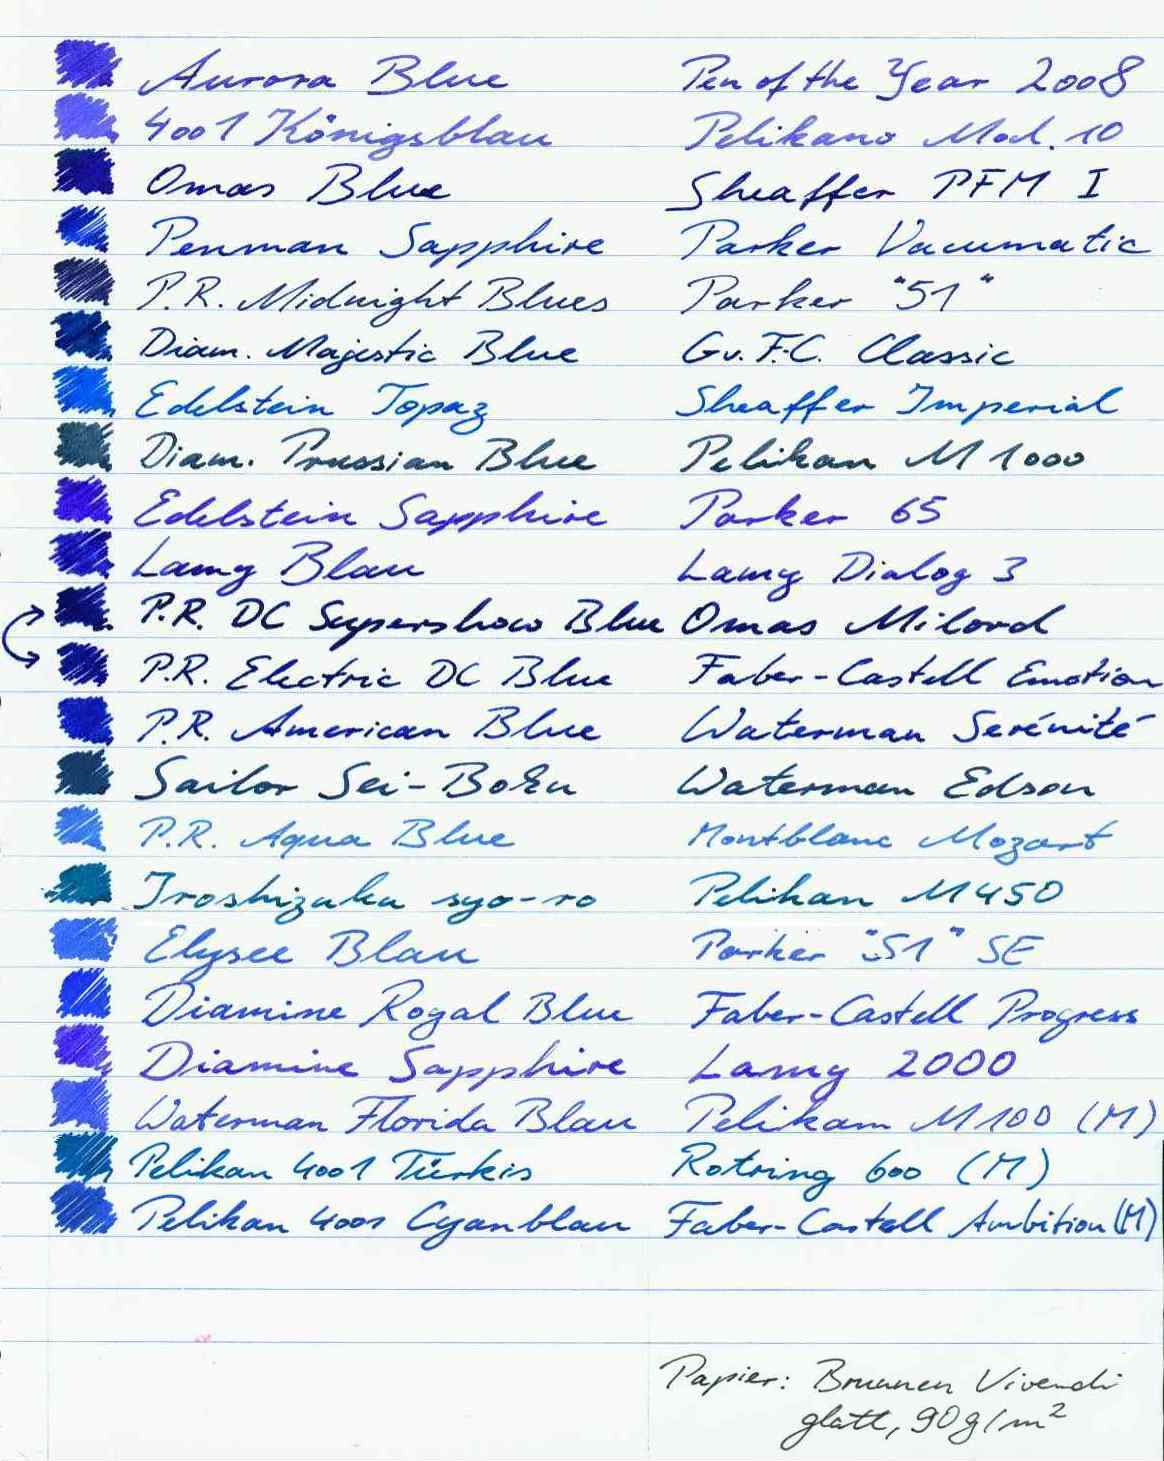 Aurora Blue Pen of the Year 2008
4001 Königsblau Pelikano Mod. 10
Omas Blue Sheaffer PFM I
Penman Sapphire Parker Vacumatic
P.R. Midnight Blues Parker "51"
Diam. Majestic Blue Gv.F.-C. Classic
Edelstein Topaz Sheaffer Imperial
Diam. Prussian Blue Pelikan M1000
Edelstein Sapphire Parker 65
Lamy Blau Lamy Dialog 3
P.R. DC Supershow Blue Omas Milord
P.R. Electric DC Blue Faber-Castell Emotion
P.R. American Blue Waterman Serénité
Sailor Sei-Boku Waterman Edson
P.R. Aqua Blue Montblanc Mozart
Iroshizuku syo-ro Pelikan M450
Elysee Blau Parker "51" SE
Diamine Royal Blue Faber-Castell Progress
Diamine Sapphire Lamy 2000
Waterman Florida Blau Pelikan M100 (M)
Pelikan 4001 Türkis Rotring 600 (M)
Pelikan 4001 Cyanblau Faber-Castell Ambition (M)
Papier: Brunnen Vivendi
glatt, 90g/m²